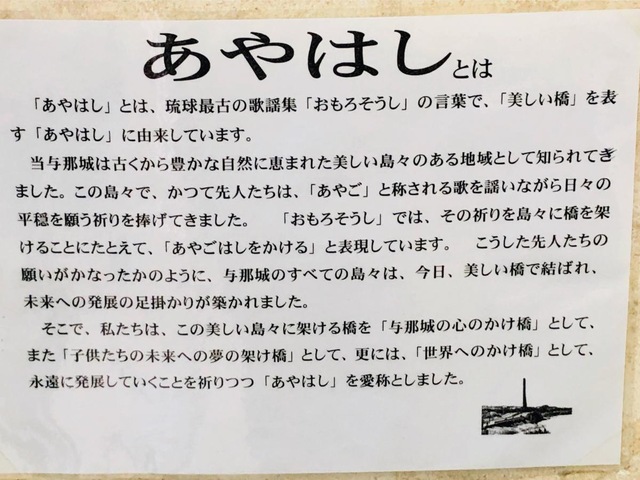 あやはしとは
「あやはし」とは、琉球最古の歌謡集「おもろそうし」の言葉で、「美しい橋」を表
す「あやはし」に由来しています。
当与那城は古くから豊かな自然に恵まれた美しい島々のある地域として知られてき
ました。この島々で、かつて先人たちは、「あやご」と称される歌を謡いながら日々の
平穏を願う祈りを捧げてきました。 「おもろそうし」では、その祈りを島々に橋を架
けることにたとえて、「あやごはしをかける」と表現しています。 こうした先人たちの
願いがかなったかのように、与那城のすべての島々は、今日、美しい橋で結ばれ、
未来への発展の足掛かりが築かれました。
そこで、私たちは、この美しい島々に架ける橋を「与那城の心のかけ橋」として、
また「子供たちの未来への夢の架け橋」として、更には、「世界へのかけ橋」として、
永遠に発展していくことを祈りつつ「あやはし」を愛称としました。